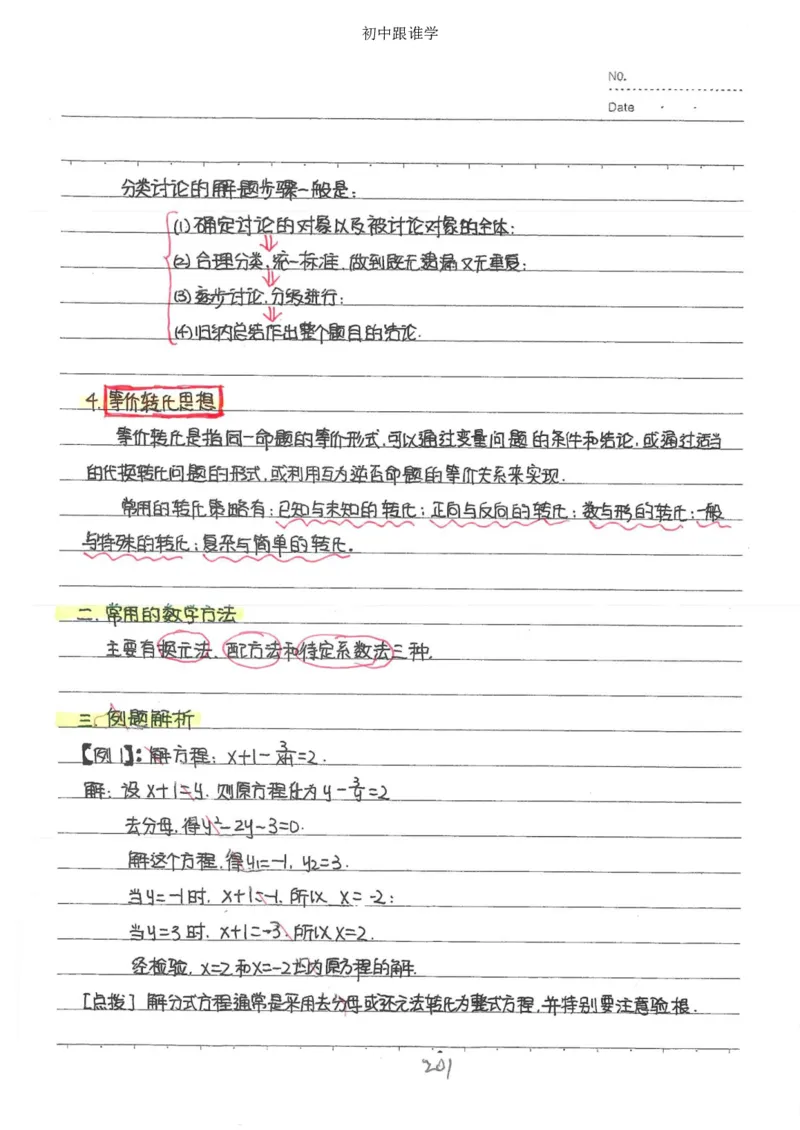 初中跟谁学
No.
Date
分类讨论的解题步骤一般是:
(1)确定讨论的对象以及被讨论对象的全体;
(2)合理分类,统一标准,做到既无遗漏又无重复;
(3)逐步讨论,分级进行;
(4)归纳总结作出整个题目的结论.
4.等价转化思想
等价转化是指同一命题的等价形式,可以通过变量问题的条件和结论,或通过适当
的代换转化问题的形式,或利用互为逆否命题的等价关系来实现.
常用的转化策略有:已知与未知的转化;正向与反向的转化;数与形的转化;一般
与特殊的转化;复杂与简单的转化.
二.常用的数学方法
主要有换元法、配方法和待定系数法三种.
三.例题解析
【例1】:解方程:x+1-3/(x+1)=2.
解:设x+1=y,则原方程化为y-3/y=2
去分母,得y²-2y-3=0.
解这个方程,得y₁=-1,y₂=3.
当y=-1时,x+1=-1,所以x=-2;
当y=3时,x+1=3,所以x=2.
经检验,x=2和x=-2均为原方程的解.
[点拨]解分式方程通常是采用去分母或还元法转化为整式方程,并特别要注意验根.
201